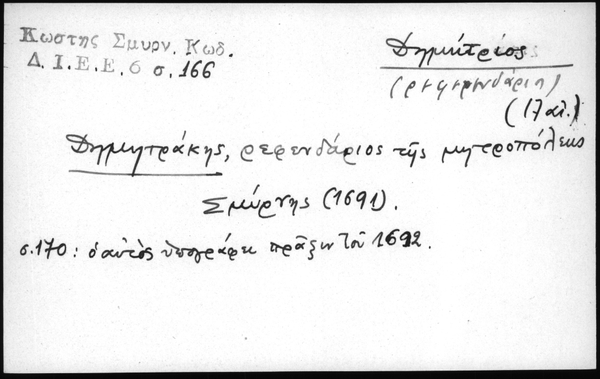 Κωστης Σμυρν. Κωδ.
Δ.Ι.Ε.Ε.6 σ.166
Δημήτριος
(ρεφερενδάριος)
(17 αἰ.)
Δημητράκης, ρεφενδάριος τῆς μητροπόλεως
Σμύρνης (1691).
σ.170: ὁ αὐτὸς ὑπογράφει πρᾶξιν τοῦ 1692.